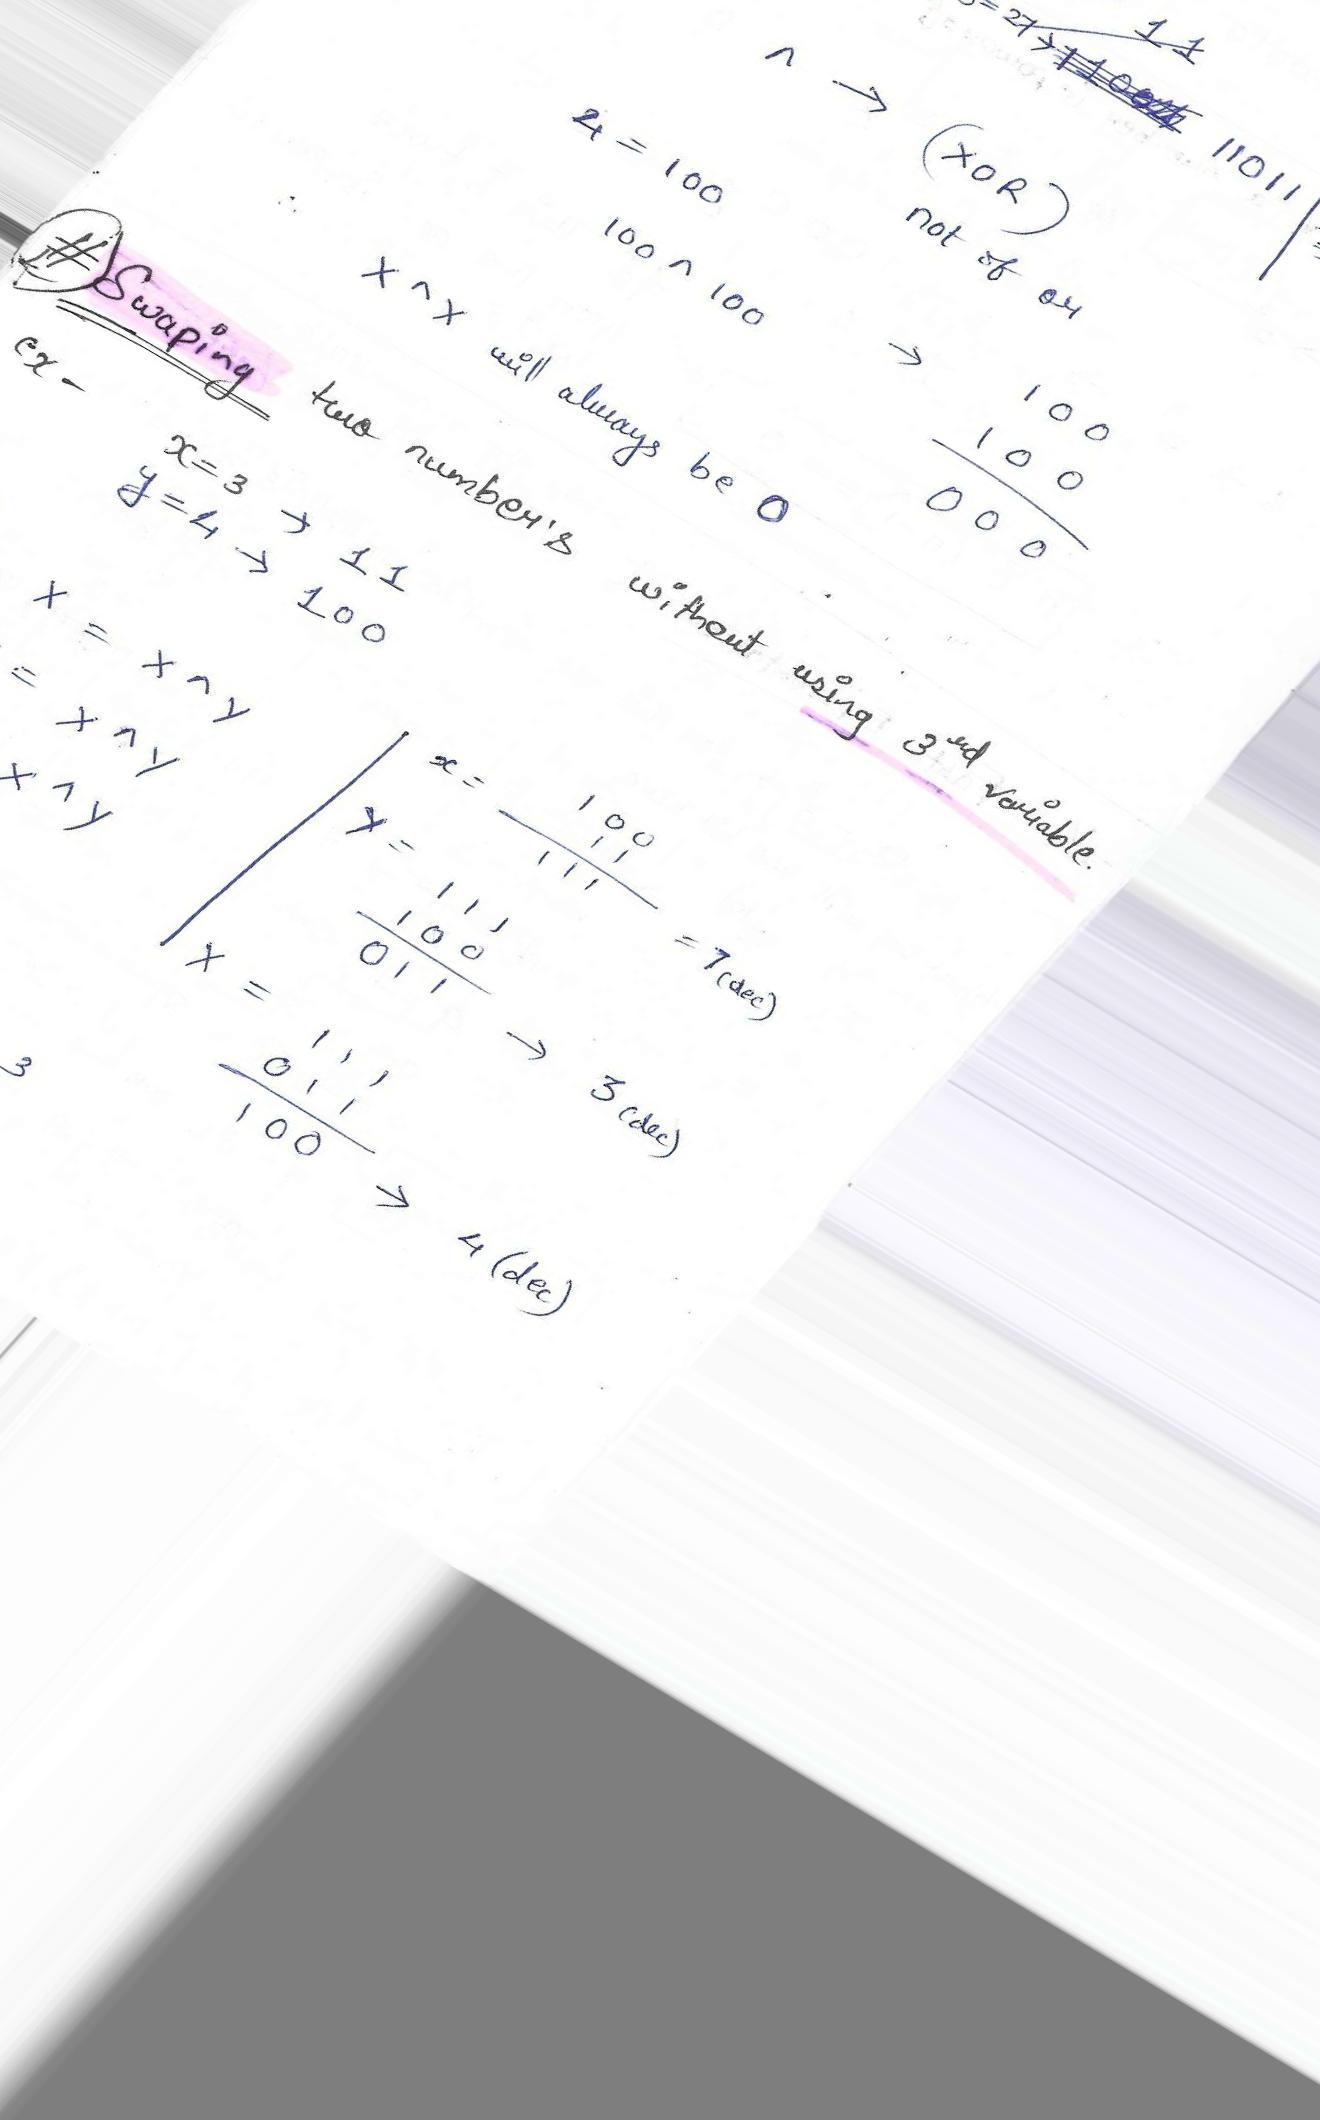 = 27 → 11
11011
^ → (XOR)
not of or
4 = 100
100 ^ 100 → 100
100
000
∴ x ^ x will always be 0
# Swaping two number's without using 3rd variable.
ex -
x = 3 → 11
y = 4 → 100
x = x ^ y
= x ^ y
x ^ y
x = 100
11
111 = 7 (dec)
y = 111
100
011 → 3 (dec)
x = 111
011
100 → 4 (dec)
3